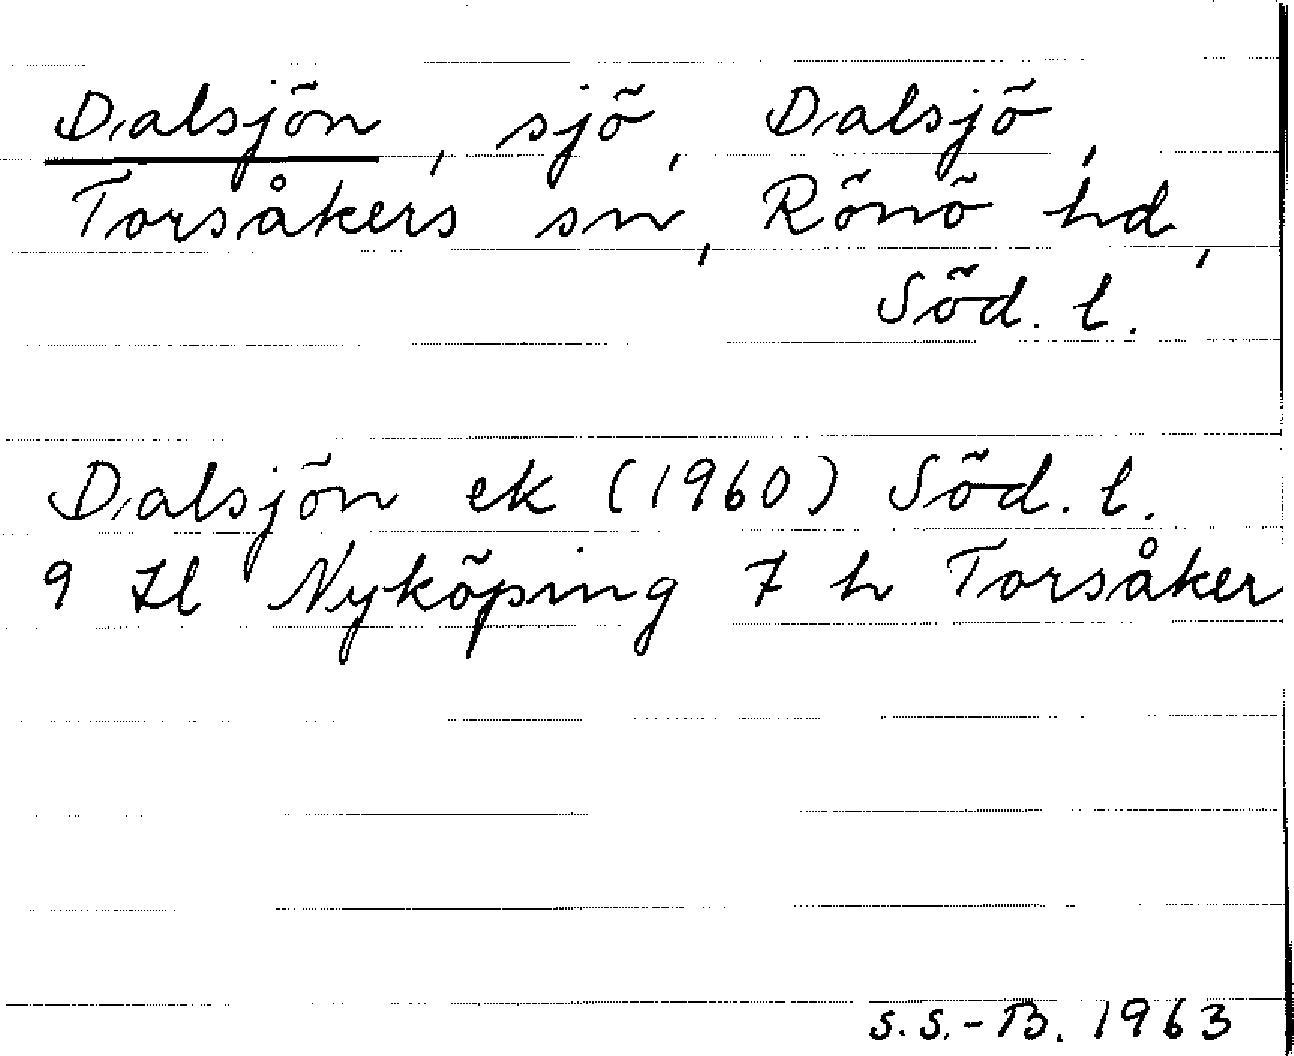 Dalsjön, sjö, Dalsjö,
Torsåkers sn, Rönö hd,
Söd. l.
Dalsjön ek (1960) Söd. l.
9 Il Nyköping 7 h Torsåker
S.S.-B. 1963